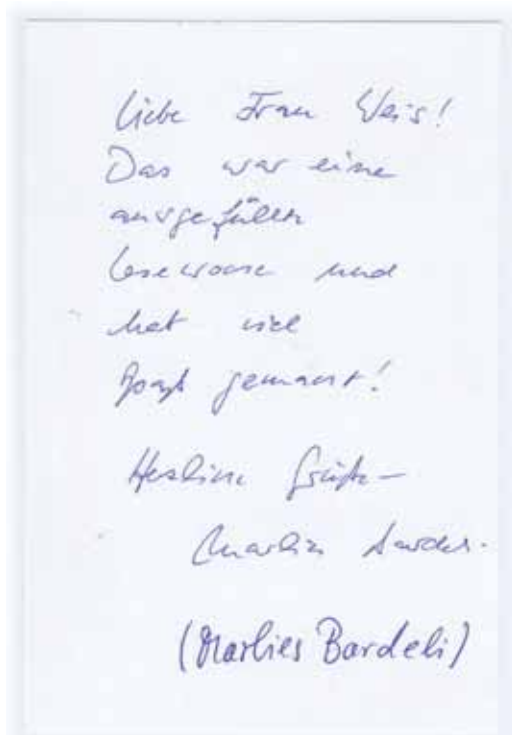 Liebe Frau Weis!
Das war eine
ausgefüllte
Lesewoche und
hat viel
Spaß gemacht!
Herzliche Grüße –
Marlies Bardeli
(Marlies Bardeli)